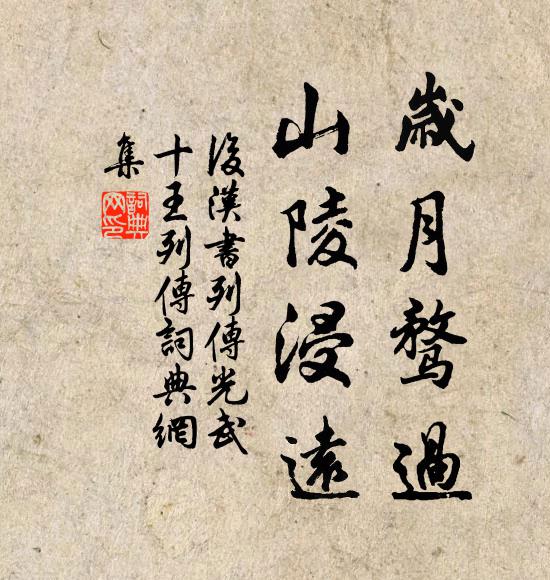 歲月鶩過
山陵浸遠
後漢書列傳光武
十王列傳詞典網
集
詞典
网印